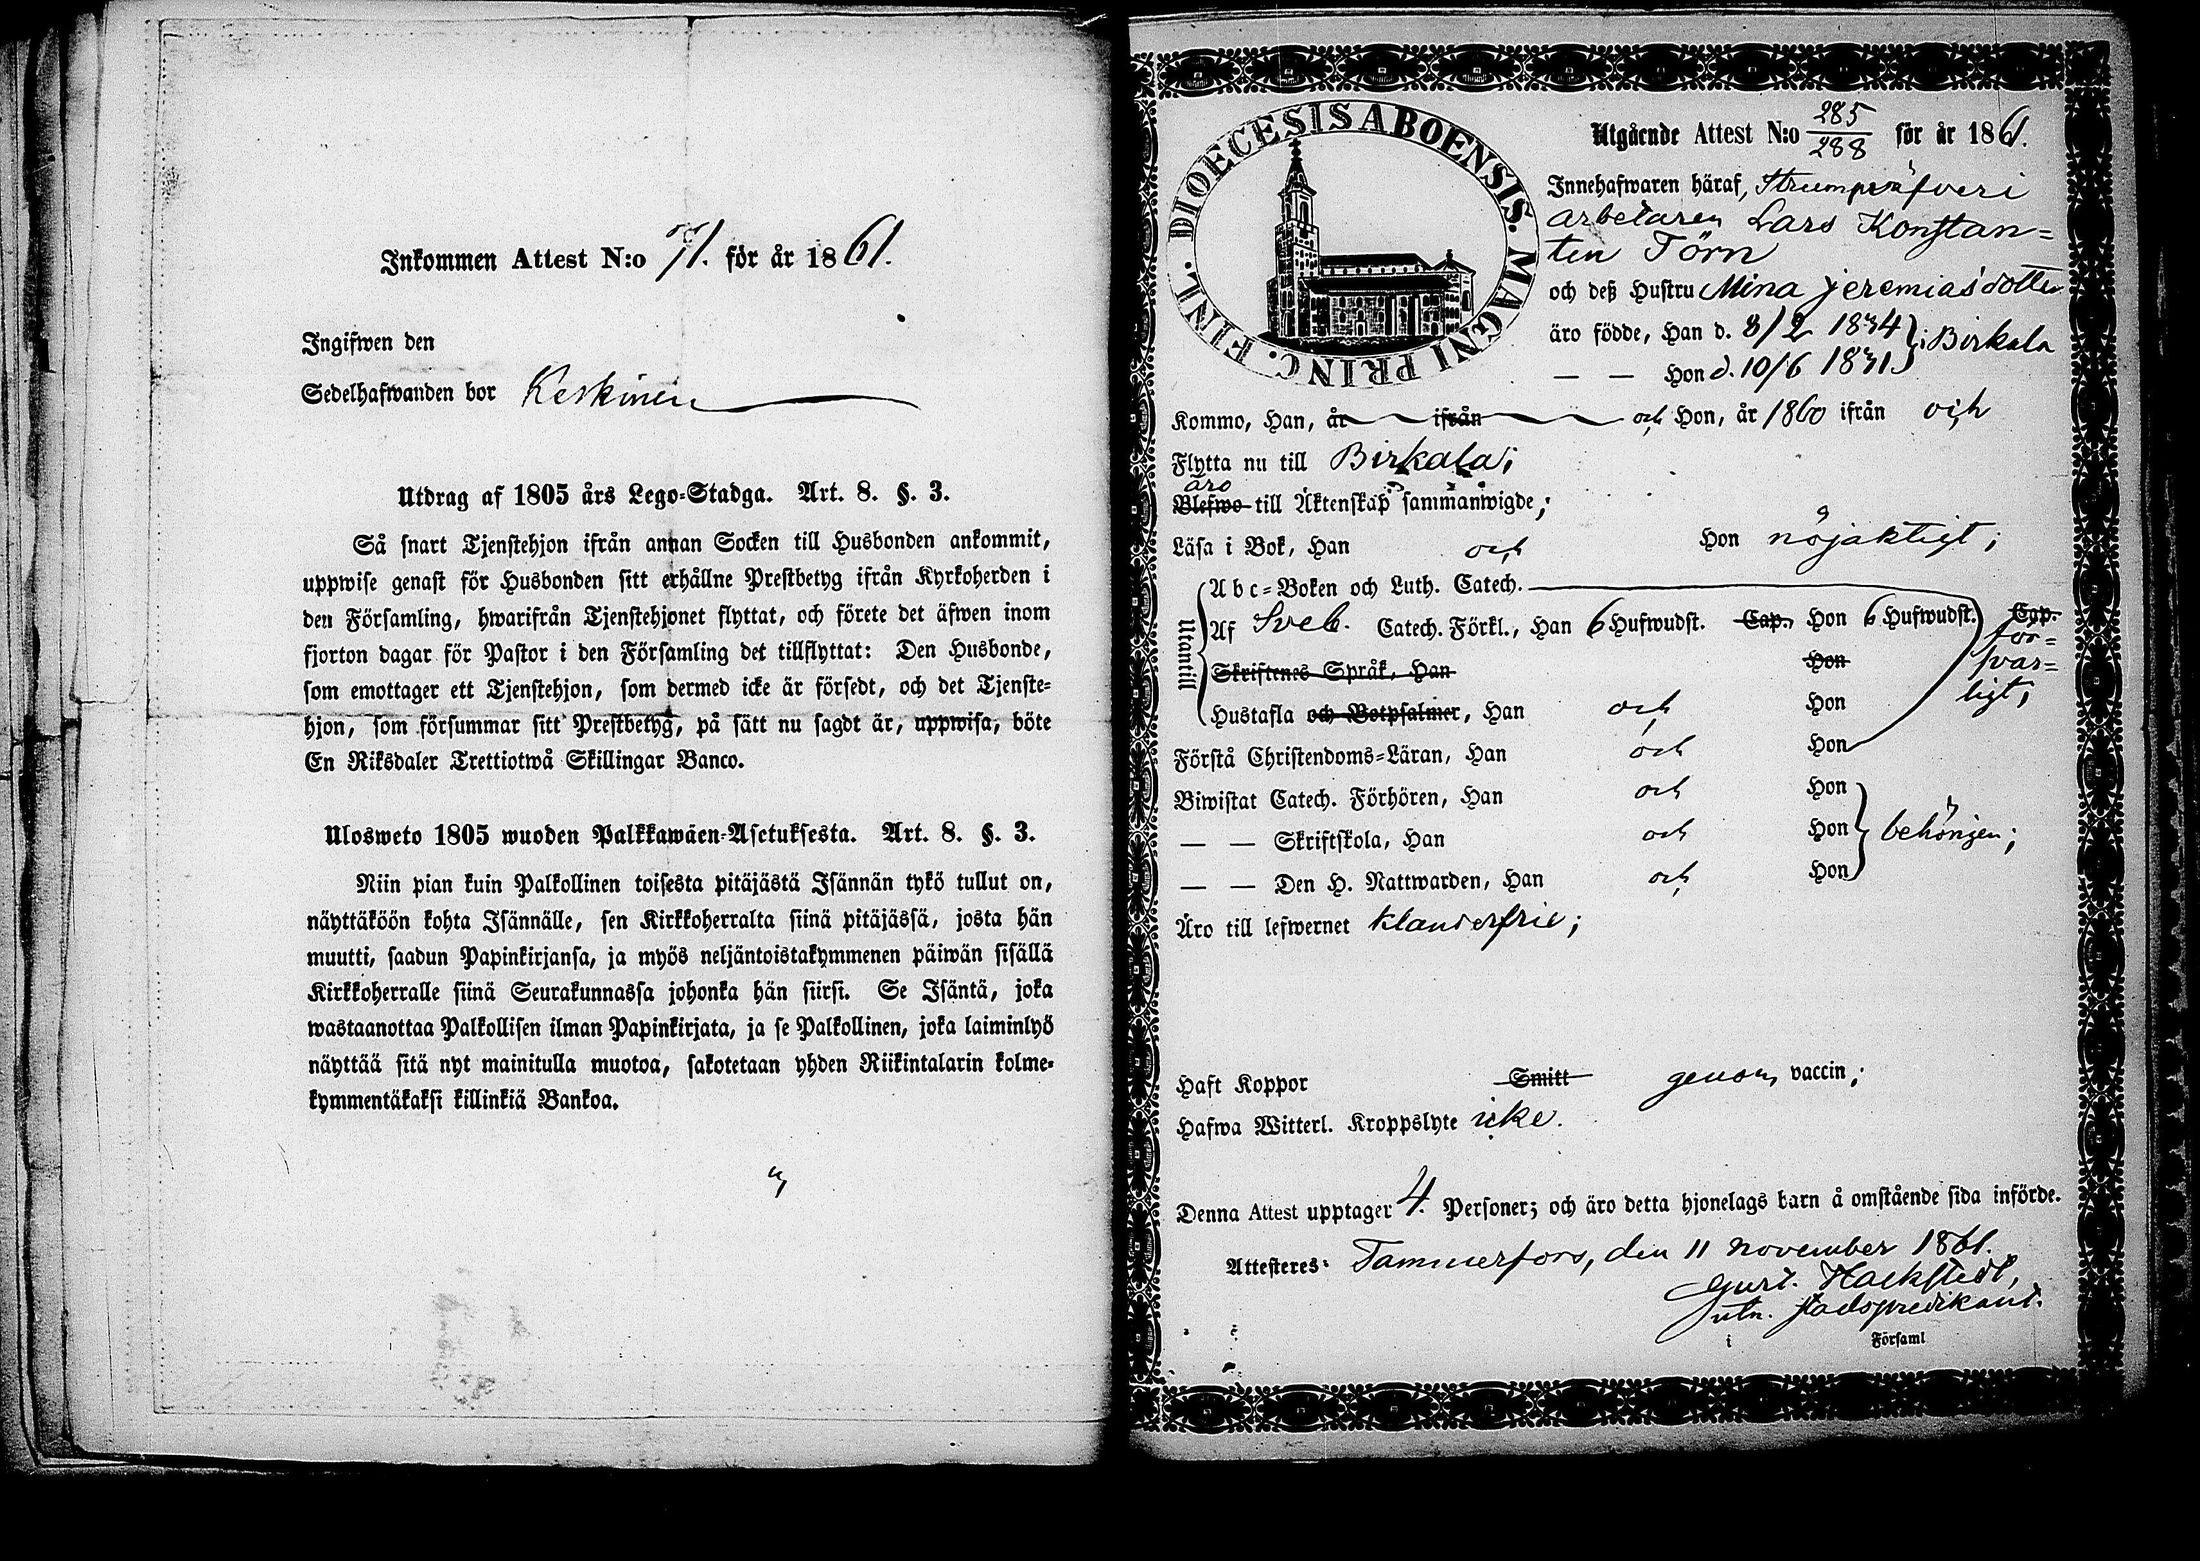 Inkommen Attest N:o 71. för år 1861.
Ingifwen den
Sedelhafwanden bor Keskinen
Utdrag af 1805 års Lego-Stadga. Art. 8. §. 3.
Så snart Tjenstehjon ifrån annan Socken till Husbonden ankommit,
uppwise genast för Husbonden sitt erhållne Prestbetyg ifrån Kyrkoherden i
den Församling, hwarifrån Tjenstehjonet flyttat, och förete det äfwen inom
fjorton dagar för Pastor i den Församling det tillflyttat: Den Husbonde,
som emottager ett Tjenstehjon, som dermed icke är försedt, och det Tjenste-
hjon, som försummar sitt Prestbetyg, på sätt nu sagdt är, uppwisa, böte
En Riksdaler Trettiotwå Skillingar Banco.
Ulosweto 1805 wuoden Palkkawäen-Asetuksesta. Art. 8. §. 3.
Niin pian kuin Palkollinen toisesta pitäjästä Isännän tykö tullut on,
näyttäköön kohta Isännälle, sen Kirkkoherralta siinä pitäjässä, josta hän
muutti, saadun Papinkirjansa, ja myös neljäntoistakymmenen päiwän sisällä
Kirkkoherralle siinä Seurakunnassa johonka hän siirsi. Se Isäntä, joka
wastaanottaa Palkollisen ilman Papinkirjata, ja se Palkollinen, joka laiminlyö
näyttää sitä nyt mainitulla muotoa, sakotetaan yhden Riikintalarin kolme-
kymmentäkaksi killinkiä Bankoa.
DIOECESIS ABOENSIS. MAGNI PRINC. FINL.
Utgående Attest N:o 285/288 för år 1861.
Innehafwaren häraf, Strumpväfveri
arbetaren Lars Konstan=
tin Törn
och deß Hustru Mina Jeremiasdotter
äro födde, Han d. 8/2 1834 } i Birkala
— — Hon d. 10/6 1831
Kommo, Han, år ifrån och Hon, år 1860 ifrån och
Flytta nu till Birkala;
äro
Blefwo till Äktenskap sammanwigde;
Läsa i Bok, Han och Hon nöjaktigt;
Utantill
Abc=Boken och Luth. Catech.
Af Sveb. Catech. Förkl., Han 6 Hufwudst. Cap. Hon 6 Hufwudst. Cap.
för=
svar=
ligt;
Skriftenes Språk, Han Hon
Hustafla och Botpsalmer, Han och Hon
Förstå Christendoms=Läran, Han och Hon
Biwistat Catech. Förhören, Han och Hon
— — Skriftskola, Han och Hon } behörigen;
— — Den H. Nattwarden, Han och Hon
Äro till lefwernet klanderfrie;
Haft Koppor Smitt genom vaccin;
Hafwa Witterl. Kroppslyte icke.
Denna Attest upptager 4. Personer; och äro detta hjonelags barn å omstående sida införde.
Attesteres: Tammerfors, den 11 November 1861.
Gust. Hackstedt,
utn. stadspredikant.
i Församl